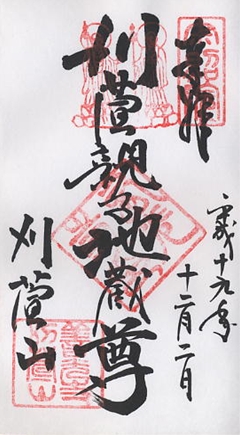 奉拝
平成十九年
十二月二日
刈萱親子地蔵尊
刈萱山